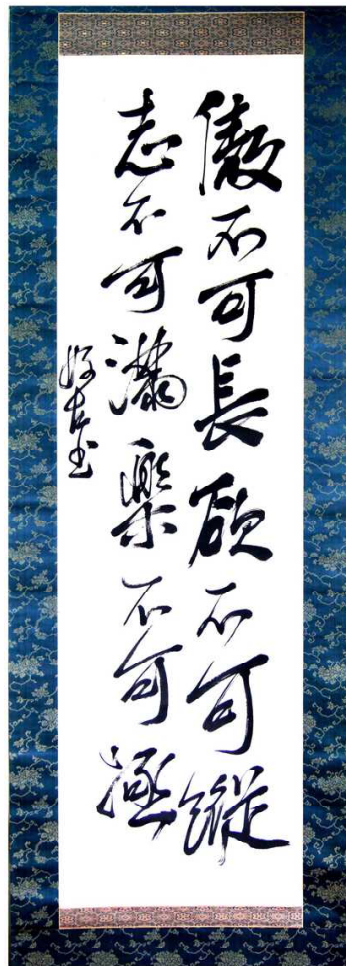 傲不可長欲不可縱
志不可滿樂不可極